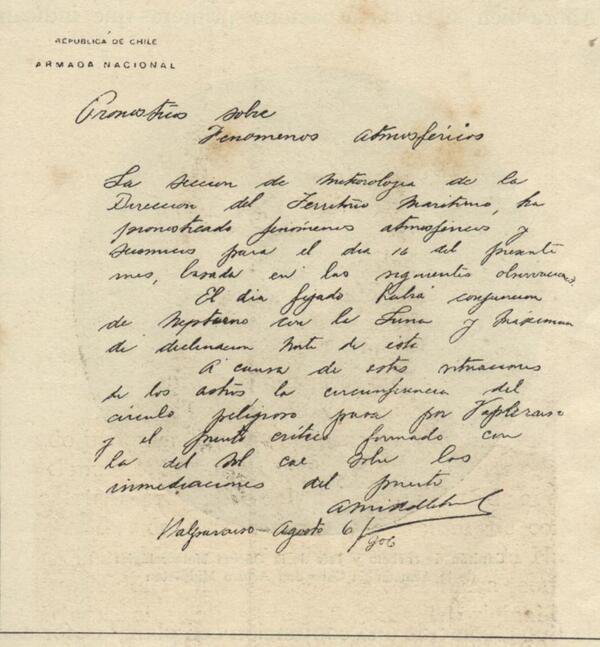 REPÚBLICA DE CHILE
ARMADA NACIONAL
Pronosticos sobre
Fenomenos atmosféricos
La seccion de meteorologia de la
Direccion del Territorio Maritimo, ha
pronosticado fenómenos atmosféricos y
seismicos para el dia 16 del presente
mes, basada en las siguientes observaciones.
El dia fijado habrá conjuncion
de Neptuno con la Luna y máximum
de declinacion norte de esta
A causa de estas situaciones
de los astros la circunferencia del
círculo peligroso pasa por Valparaiso
y el punto crítico formado con
la del sol cae sobre las
inmediaciones del puerto
Valparaiso Agosto 6/906